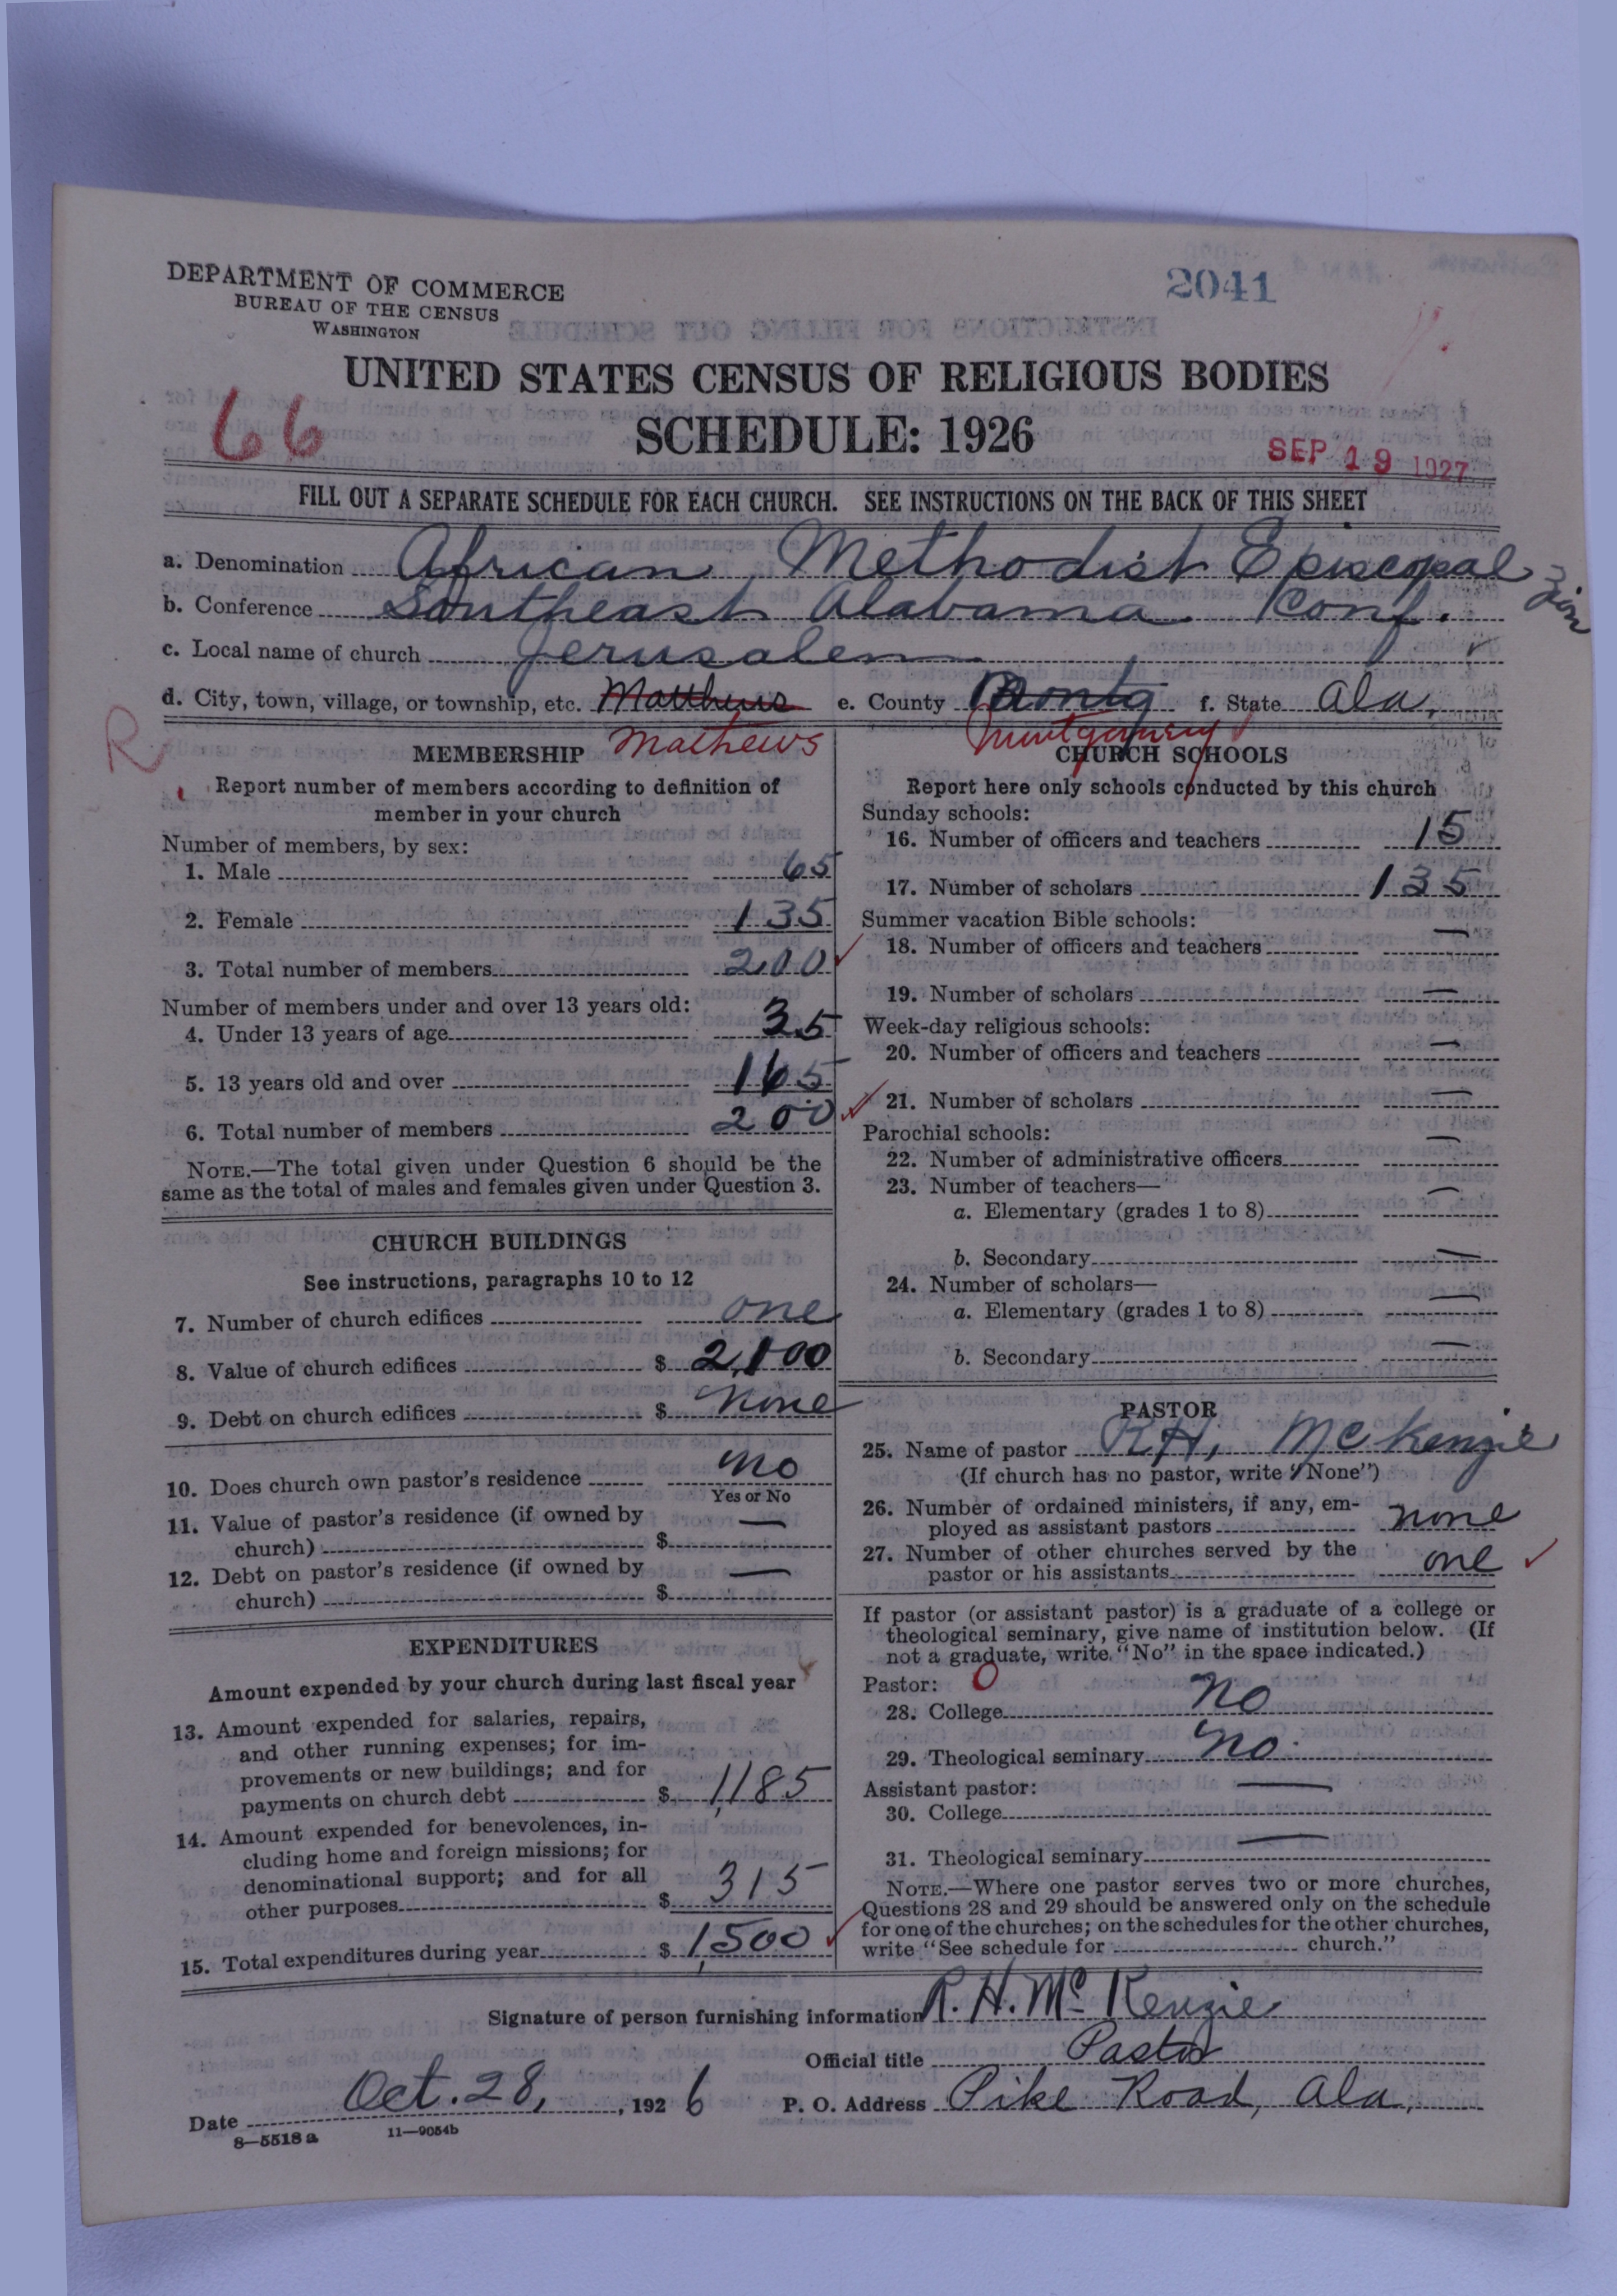 DEPARTMENT OF COMMERCE
BUREAU OF THE CENSUS
WASHINGTON
2041
UNITED STATES CENSUS OF RELIGIOUS BODIES
66
SCHEDULE: 1926
SEP 19 1927
FILL OUT A SEPARATE SCHEDULE FOR EACH CHURCH. SEE INSTRUCTIONS ON THE BACK OF THIS SHEET
a. Denomination African Methodist Episcopal Zion
b. Conference Southeast Alabama Conf.
c. Local name of church Jerusalem
d. City, town, village, or township, etc. Matthews e. County Montg f. State Ala.
R
Mathews Montgomery
MEMBERSHIP
Report number of members according to definition of
member in your church
Number of members, by sex:
1. Male 65
2. Female 135
3. Total number of members 200
Number of members under and over 13 years old:
4. Under 13 years of age 35
5. 13 years old and over 165
6. Total number of members 200
NOTE.—The total given under Question 6 should be the
same as the total of males and females given under Question 3.
CHURCH BUILDINGS
See instructions, paragraphs 10 to 12
7. Number of church edifices one
8. Value of church edifices $ 2,100
9. Debt on church edifices $ None
10. Does church own pastor's residence No
Yes or No
11. Value of pastor's residence (if owned by
church) $ —
12. Debt on pastor's residence (if owned by
church) $ —
EXPENDITURES
Amount expended by your church during last fiscal year
13. Amount expended for salaries, repairs,
and other running expenses; for im-
provements or new buildings; and for
payments on church debt $ 1,185
14. Amount expended for benevolences, in-
cluding home and foreign missions; for
denominational support; and for all
other purposes $ 315
15. Total expenditures during year $ 1,500
CHURCH SCHOOLS
Report here only schools conducted by this church
Sunday schools:
16. Number of officers and teachers 15
17. Number of scholars 135
Summer vacation Bible schools:
18. Number of officers and teachers —
19. Number of scholars —
Week-day religious schools:
20. Number of officers and teachers —
21. Number of scholars —
Parochial schools:
22. Number of administrative officers —
23. Number of teachers—
a. Elementary (grades 1 to 8) —
b. Secondary —
24. Number of scholars—
a. Elementary (grades 1 to 8) —
b. Secondary —
PASTOR
25. Name of pastor R.H. McKenzie
(If church has no pastor, write "None")
26. Number of ordained ministers, if any, em-
ployed as assistant pastors none
27. Number of other churches served by the
pastor or his assistants one
If pastor (or assistant pastor) is a graduate of a college or
theological seminary, give name of institution below. (If
not a graduate, write "No" in the space indicated.)
Pastor: O
28. College No
29. Theological seminary No.
Assistant pastor:
30. College —
31. Theological seminary —
NOTE.—Where one pastor serves two or more churches,
Questions 28 and 29 should be answered only on the schedule
for one of the churches; on the schedules for the other churches,
write "See schedule for church."
Signature of person furnishing information R. H. McKenzie
Official title Pastor
Date Oct. 28, 1926 P. O. Address Pike Road, Ala,
8—5518a 11—9054b